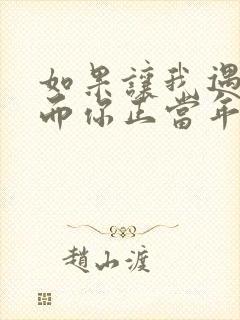 如果讓我遇
而你正當年
趙小渡